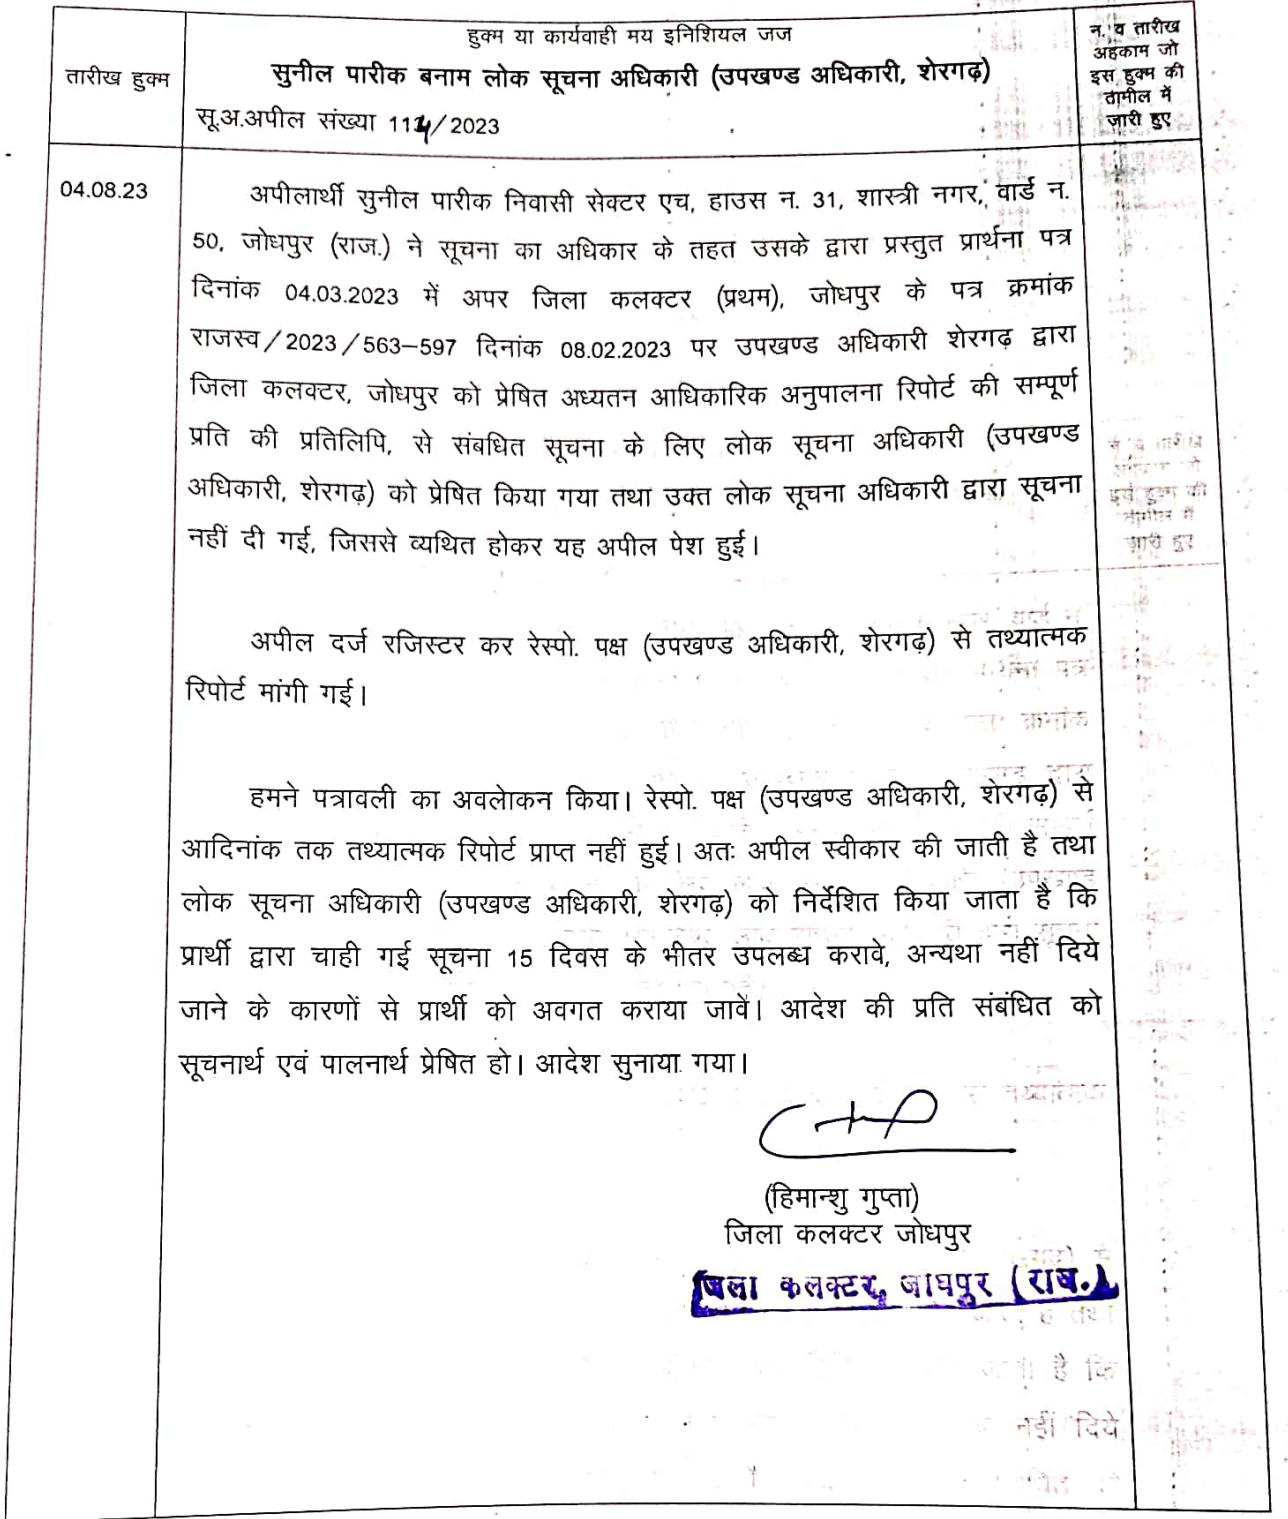 तारीख हुक्म
हुक्म या कार्यवाही मय इनिशियल जज
सुनील पारीक बनाम लोक सूचना अधिकारी (उपखण्ड अधिकारी, शेरगढ़)
सू.अ.अपील संख्या 114/2023
न. व तारीख
अहकाम जो
इस हुक्म की
तामील में
जारी हुए
04.08.23
अपीलार्थी सुनील पारीक निवासी सेक्टर एच, हाउस न. 31, शास्त्री नगर, वार्ड न.
50, जोधपुर (राज.) ने सूचना का अधिकार के तहत उसके द्वारा प्रस्तुत प्रार्थना पत्र
दिनांक 04.03.2023 में अपर जिला कलक्टर (प्रथम), जोधपुर के पत्र क्रमांक
राजस्व/2023/563–597 दिनांक 08.02.2023 पर उपखण्ड अधिकारी शेरगढ़ द्वारा
जिला कलक्टर, जोधपुर को प्रेषित अध्यतन आधिकारिक अनुपालना रिपोर्ट की सम्पूर्ण
प्रति की प्रतिलिपि, से संबधित सूचना के लिए लोक सूचना अधिकारी (उपखण्ड
अधिकारी, शेरगढ़) को प्रेषित किया गया तथा उक्त लोक सूचना अधिकारी द्वारा सूचना
नहीं दी गई, जिससे व्यथित होकर यह अपील पेश हुई।
अपील दर्ज रजिस्टर कर रेस्पो. पक्ष (उपखण्ड अधिकारी, शेरगढ़) से तथ्यात्मक
रिपोर्ट मांगी गई।
हमने पत्रावली का अवलोकन किया। रेस्पो. पक्ष (उपखण्ड अधिकारी, शेरगढ़) से
आदिनांक तक तथ्यात्मक रिपोर्ट प्राप्त नहीं हुई। अतः अपील स्वीकार की जाती है तथा
लोक सूचना अधिकारी (उपखण्ड अधिकारी, शेरगढ़) को निर्देशित किया जाता है कि
प्रार्थी द्वारा चाही गई सूचना 15 दिवस के भीतर उपलब्ध करावे, अन्यथा नहीं दिये
जाने के कारणों से प्रार्थी को अवगत कराया जावें। आदेश की प्रति संबंधित को
सूचनार्थ एवं पालनार्थ प्रेषित हो। आदेश सुनाया गया।
(हिमान्शु गुप्ता)
जिला कलक्टर जोधपुर
जिला कलक्टर, जोधपुर (राज.)